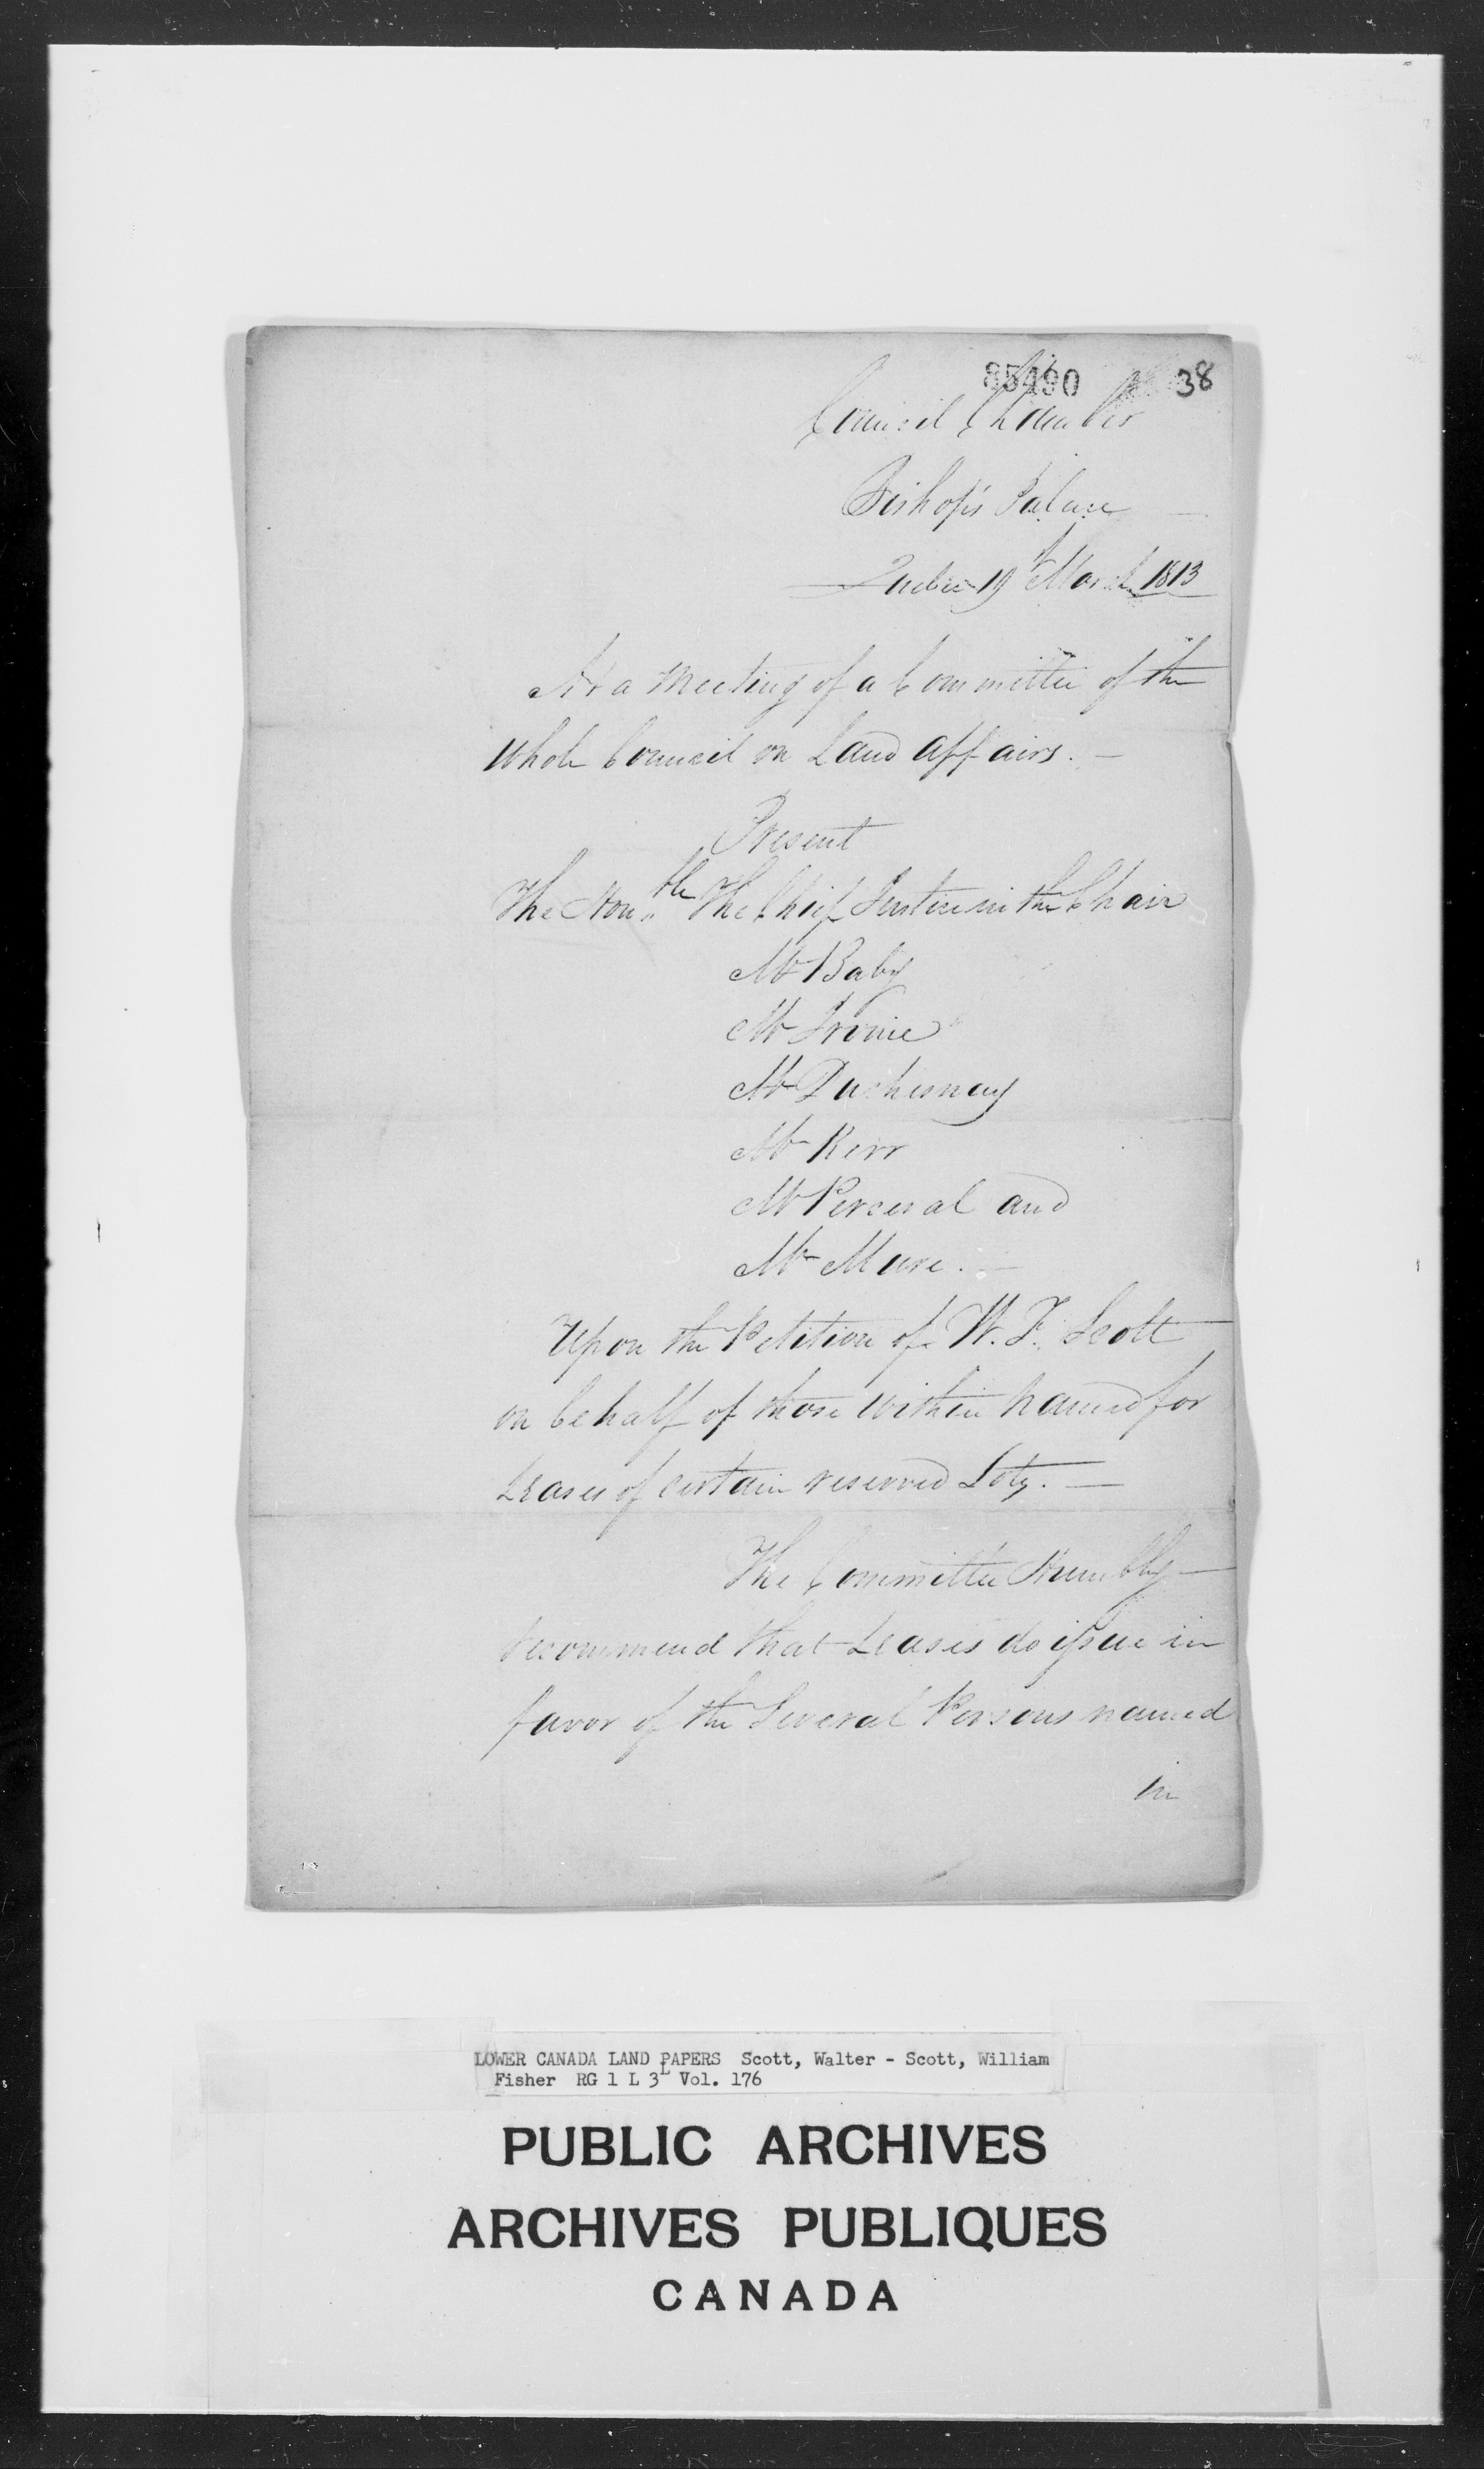 85490 38
Council Chamber
Bishop's Palace
Quebec 19th March 1813
At a Meeting of a Committee of the
Whole Council on Land affairs. —
Present
The Honble The Chief Justice in the Chair
Mr Baby
Mr Irvine
Mr Duchesnay
Mr Kerr
Mr Perceval and
Mr Mure. —
Upon the Petition of W. F. Scott
on behalf of those within named for
Leases of certain reserved Lots. —
The Committee Humbly
recommend that Leases do issue in
favor of the Several Persons named
in
LOWER CANADA LAND PAPERS Scott, Walter - Scott, William
Fisher RG 1 L 3L Vol. 176
PUBLIC ARCHIVES
ARCHIVES PUBLIQUES
CANADA